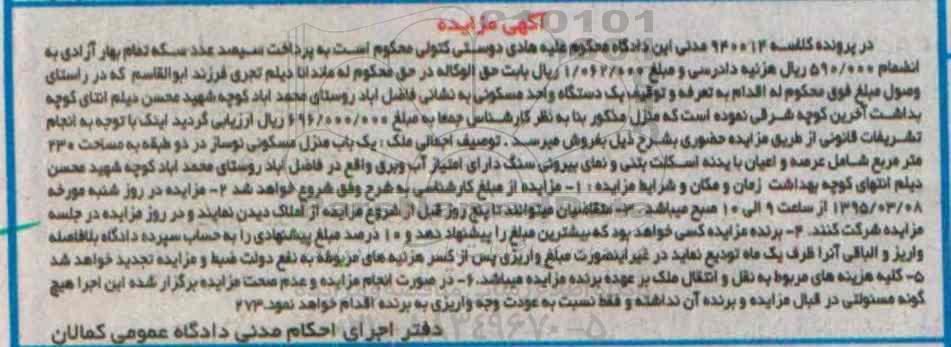 آگهی مزایده
در پرونده کلاسه ۹۴۰۰۱۴ مدنی این دادگاه محکوم علیه هادی دوستی کتولی محکوم است به پرداخت سیصد عدد سکه تمام بهار آزادی به
انضمام ۵۹۰/۰۰۰ ریال هزینه دادرسی و مبلغ ۱/۰۶۲/۰۰۰ ریال بابت حق الوکاله در حق محکوم له ماندانا دیلم تجری فرزند ابوالقاسم که در راستای
وصول مبلغ فوق محکوم له اقدام به تعرفه و توقیف یک دستگاه واحد مسکونی به نشانی فاضل اباد روستای محمد اباد کوچه شهید محسن دیلم انتای کوچه
بداشت آخرین کوچه شرقی نموده است که منزل مذکور بنا به نظر کارشناس جمعا به مبلغ ۶۹۶/۰۰۰/۰۰۰ ریال ارزیابی گردید اینک با توجه به انجام
تشریفات قانونی از طریق مزایده حضوری بشرح ذیل بفروش میرسد . توصیف اجمالی ملک : یک باب منزل مسکونی نوساز در دو طبقه به مساحت ۲۳۰
متر مربع شامل عرصه و اعیان با بدنه اسکلت بتنی و نمای بیرونی سنگ دارای امتیاز آب وبرق واقع در فاضل آباد روستای محمد آباد کوچه شهید محسن
دیلم انتهای کوچه بهداشت زمان و مکان و شرایط مزایده : ۱- مزایده از مبلغ کارشناسی به شرح وفق شروع خواهد شد ۲- مزایده در روز شنبه مورخه
۱۳۹۵/۰۳/۰۸ از ساعت ۹ الی ۱۰ صبح میباشد ۳- متقاضیان میتوانند تا پنج روز قبل از شروع مزایده از املاک دیدن نمایند و در روز مزایده در جلسه
مزایده شرکت کنند. ۴- برنده مزایده کسی خواهد بود که بیشترین مبلغ را پیشنهاد دهد و ۱۰ درصد مبلغ پیشنهادی را به حساب سپرده دادگاه بلافاصله
واریز و الباقی آنرا ظرف یک ماه تودیع نماید در غیر اینصورت مبلغ واریزی پس از کسر هزینه های مربوطه به نفع دولت ضبط و مزایده تجدید خواهد شد
۵- کلیه هزینه های مربوط به نقل و انتقال ملک بر عهده برنده مزایده میباشد. ۶- در صورت انجام مزایده و عدم صحت مزایده برگزار شده این اجرا هیچ
گونه مسئولتی در قبال مزایده و برنده آن نداشته و فقط نسبت به عودت وجه واریزی به برنده اقدام خواهد نمود. ۲۷۳
دفتر اجرای احکام مدنی دادگاه عمومی کمالان